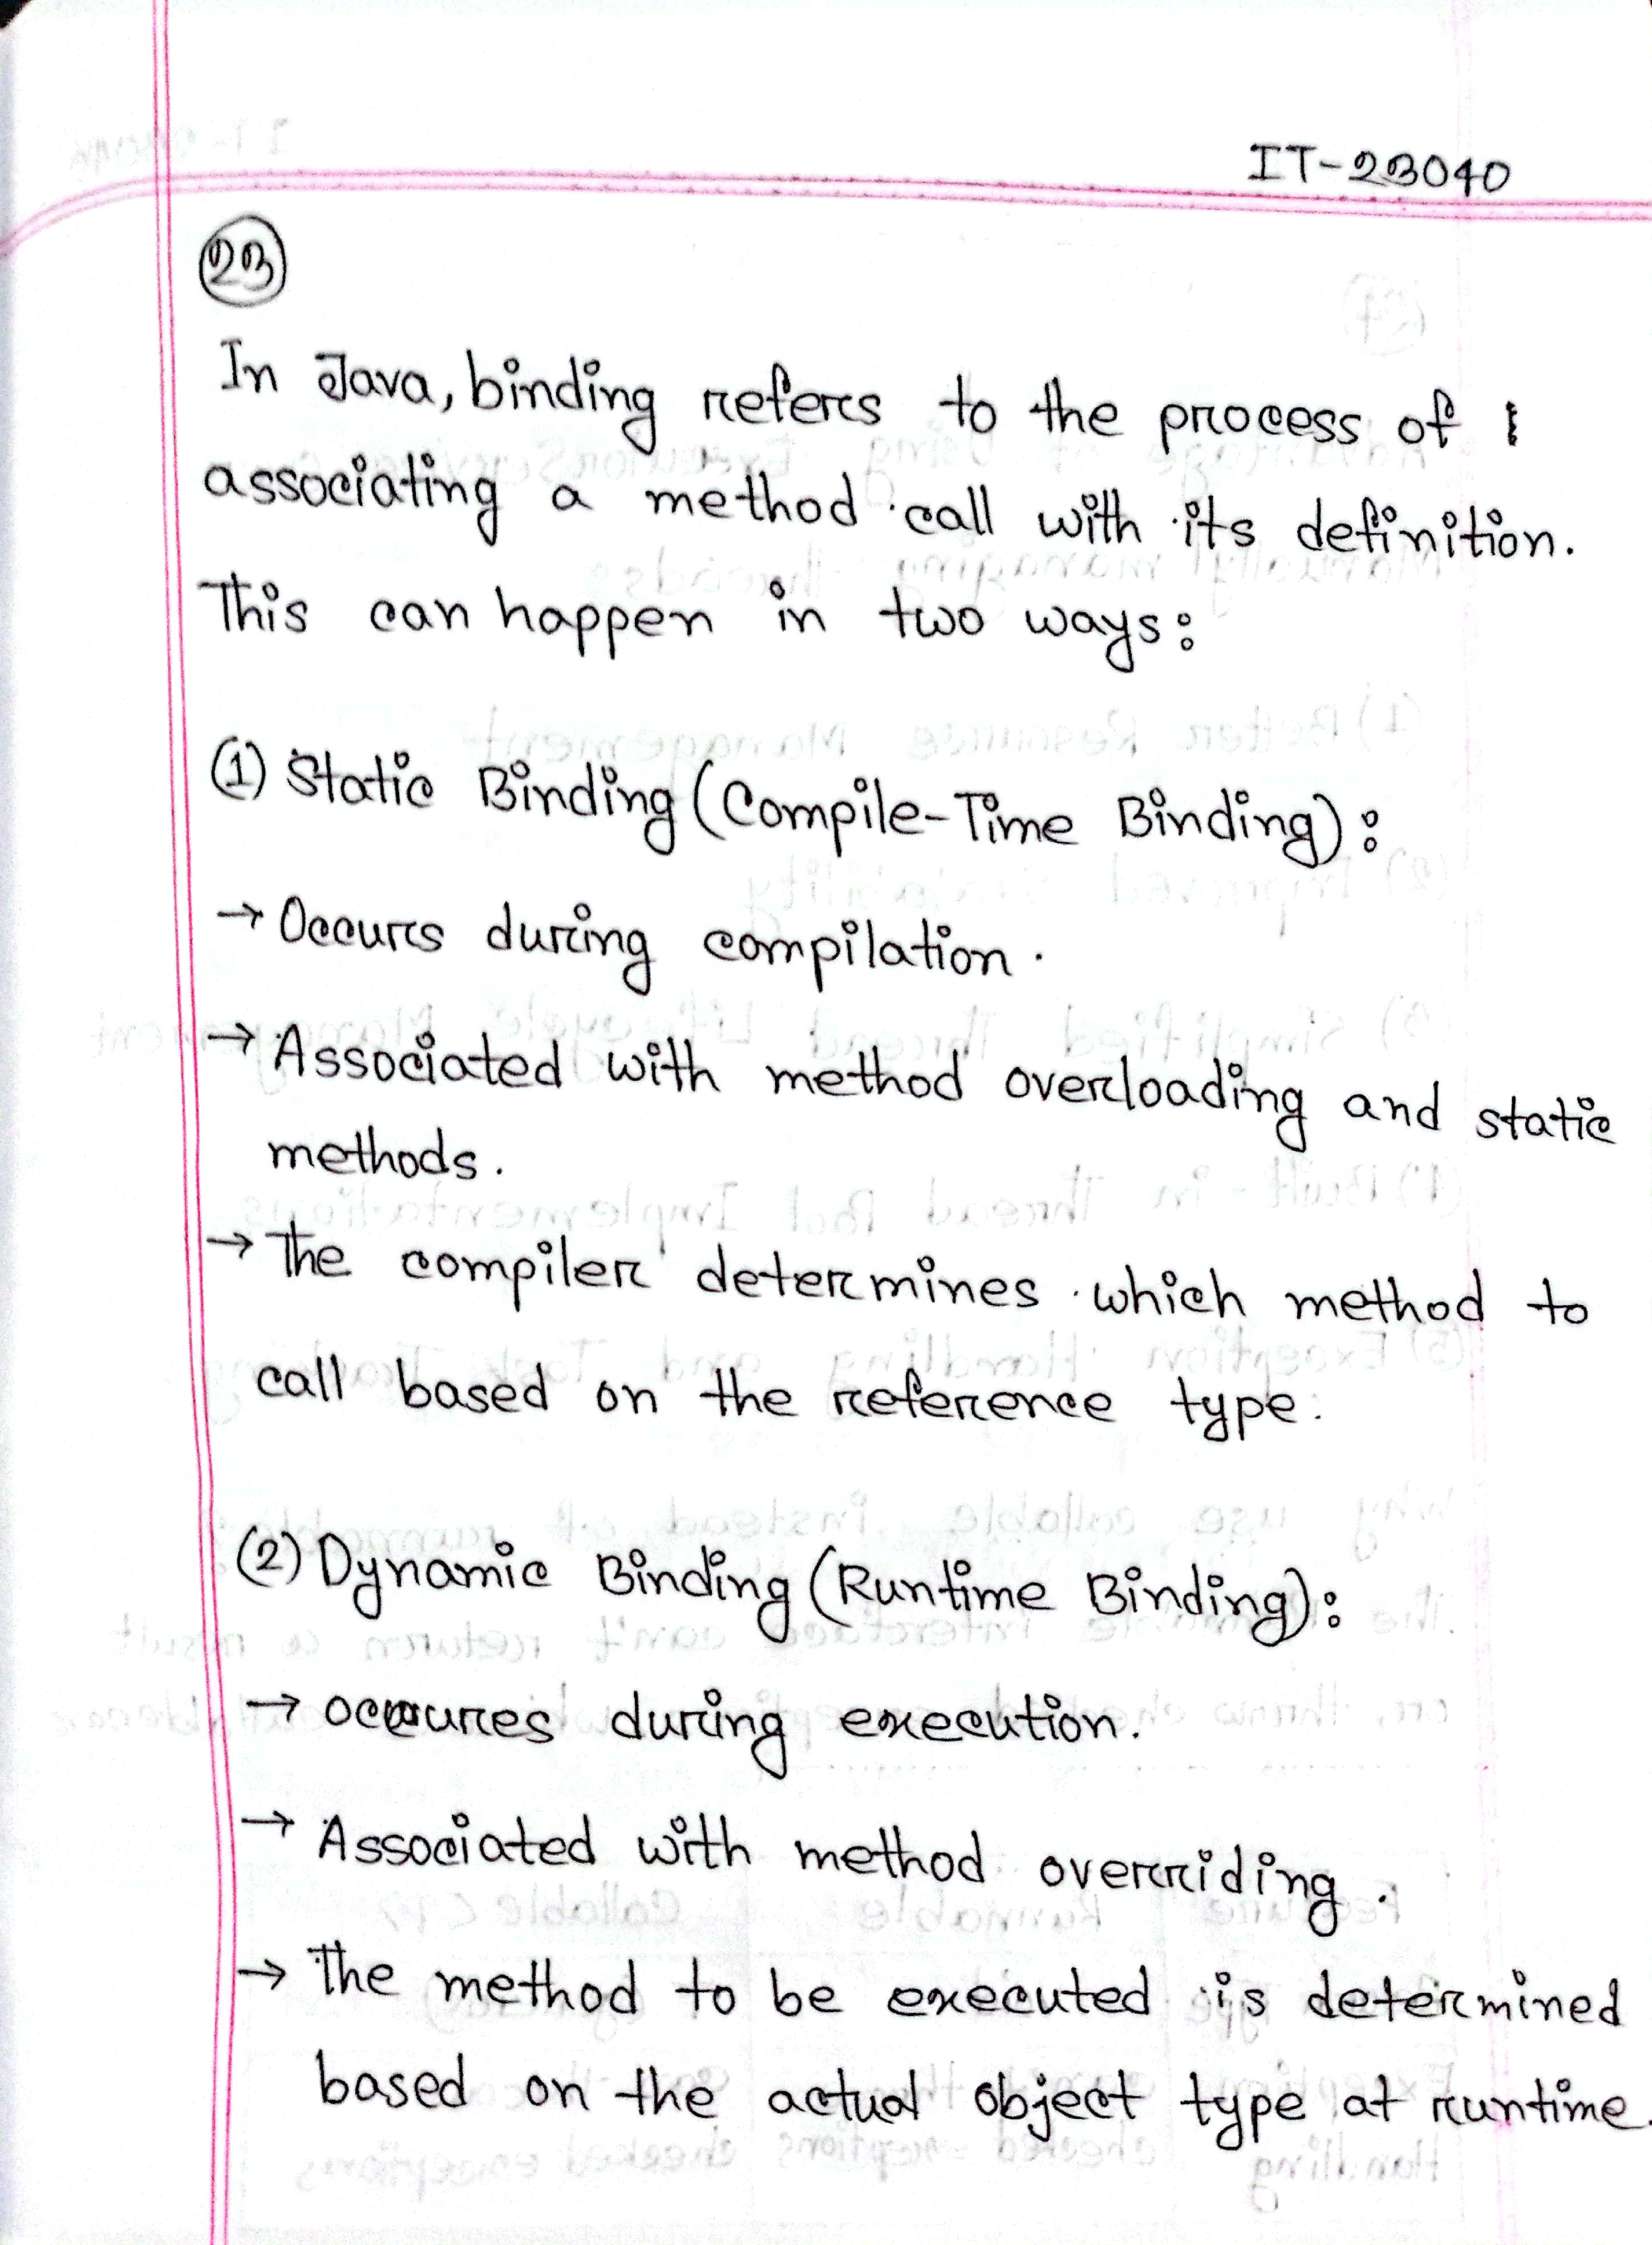 IT-23040
23
In Java, binding refers to the process of
associating a method call with its definition.
This can happen in two ways:
(1) Static Binding (Compile-Time Binding):
→ Occurs during compilation.
→ Associated with method overloading and static
methods.
→ The compiler determines which method to
call based on the reference type.
(2) Dynamic Binding (Runtime Binding):
→ occures during execution.
→ Associated with method overriding.
→ The method to be executed is determined
based on the actual object type at runtime.